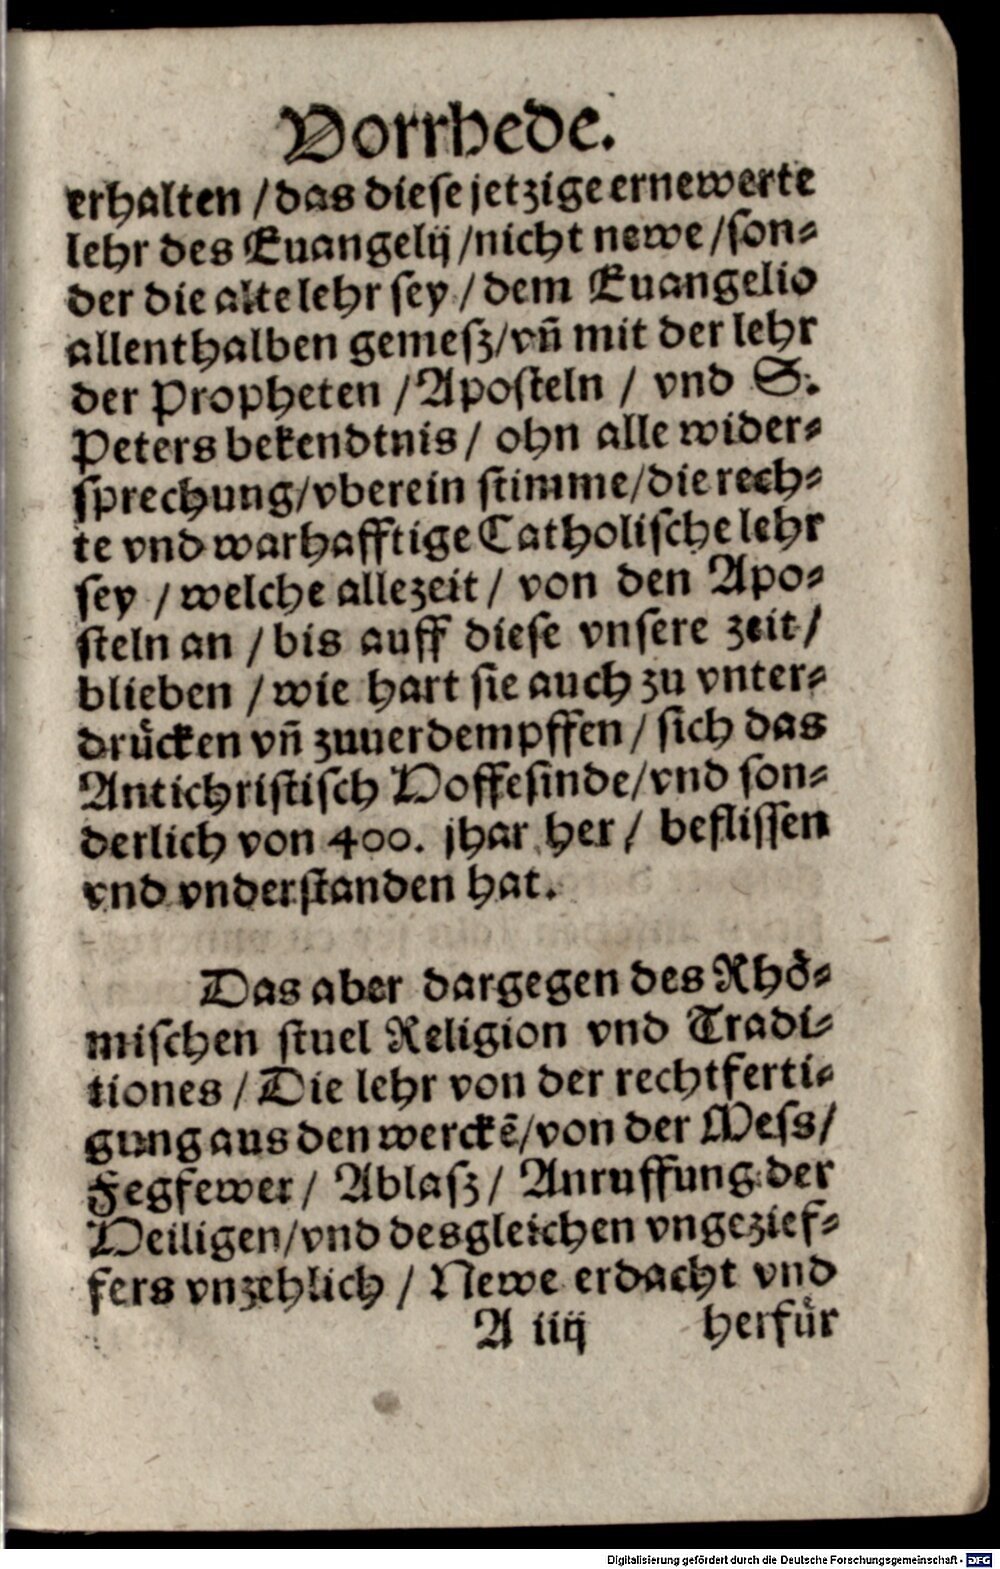 Vorrhede.
erhalten / das diese jetzige ernewerte
lehr des Euangelij / nicht newe / son⸗
der die alte lehr sey / dem Euangelio
allenthalben gemesz / vñ mit der lehr
der Propheten / Aposteln / vnd S.
Peters bekendtnis / ohn alle wider⸗
sprechung / vberein stimme / die rech⸗
te vnd warhafftige Catholische lehr
sey / welche allezeit / von den Apo⸗
steln an / bis auff diese vnsere zeit /
blieben / wie hart sie auch zu vnter⸗
drücken vñ zuuerdempffen / sich das
Antichristisch Hoffesinde / vnd son⸗
derlich von 400. jhar her / beflissen
vnd vnderstanden hat.
Das aber dargegen des Rhö⸗
mischen stuel Religion vnd Tradi⸗
tiones / Die lehr von der rechtferti⸗
gung aus den werckẽ / von der Mess /
Fegfewer / Ablasz / Anruffung der
Heiligen / vnd desgleichen vngezief⸗
fers vnzehlich / Newe erdacht vnd
A iiij herfür
Digitalisierung gefördert durch die Deutsche Forschungsgemeinschaft - DFG